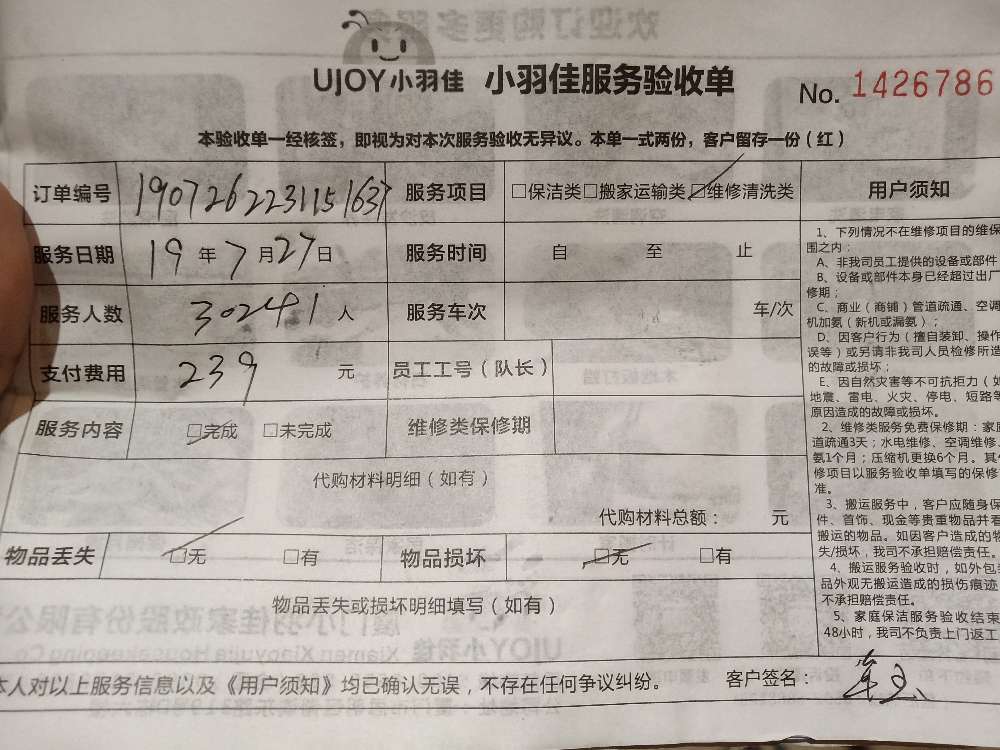 UJOY小羽佳 小羽佳服务验收单 No. 1426786
本验收单一经核签，即视为对本次服务验收无异议。本单一式两份，客户留存一份（红）
订单编号 190726223115163 服务项目 □保洁类□搬家运输类□维修清洗类 用户须知
服务日期 19年7月27日 服务时间 自 至 止
服务人数 30241人 服务车次 车/次
支付费用 239 元 员工工号（队长）
服务内容 □完成 □未完成 维修类保修期
代购材料明细（如有）
代购材料总额： 元
物品丢失 □无 □有 物品损坏 □无 □有
物品丢失或损坏明细填写（如有）
本人对以上服务信息以及《用户须知》均已确认无误，不存在任何争议纠纷。 客户签名：
1、下列情况不在维修项目的维保
围之内：
A、非我司员工提供的设备或部件
B、设备或部件本身已经超过出厂
修期；
C、商业（商铺）管道疏通、空调
机加氨（新机或漏氨）；
D、因客户行为（擅自装卸、操作
误等）或另请非我司人员检修所造
的故障或损坏；
E、因自然灾害等不可抗拒力（如
地震、雷电、火灾、停电、短路等
原因造成的故障或损坏。
2、维修类服务免费保修期：家庭
道疏通3天；水电维修、空调维修、
氨1个月；压缩机更换6个月。其
修项目以服务验收单填写的保修
准。
3、搬运服务中，客户应随身保
件、首饰、现金等贵重物品并看
搬运的物品。如因客户造成的物
失/损坏，我司不承担赔偿责任。
4、搬运服务验收时，如外包
品外观无搬运造成的损伤痕迹
不承担赔偿责任。
5、家庭保洁服务验收结束
48小时，我司不负责上门返工